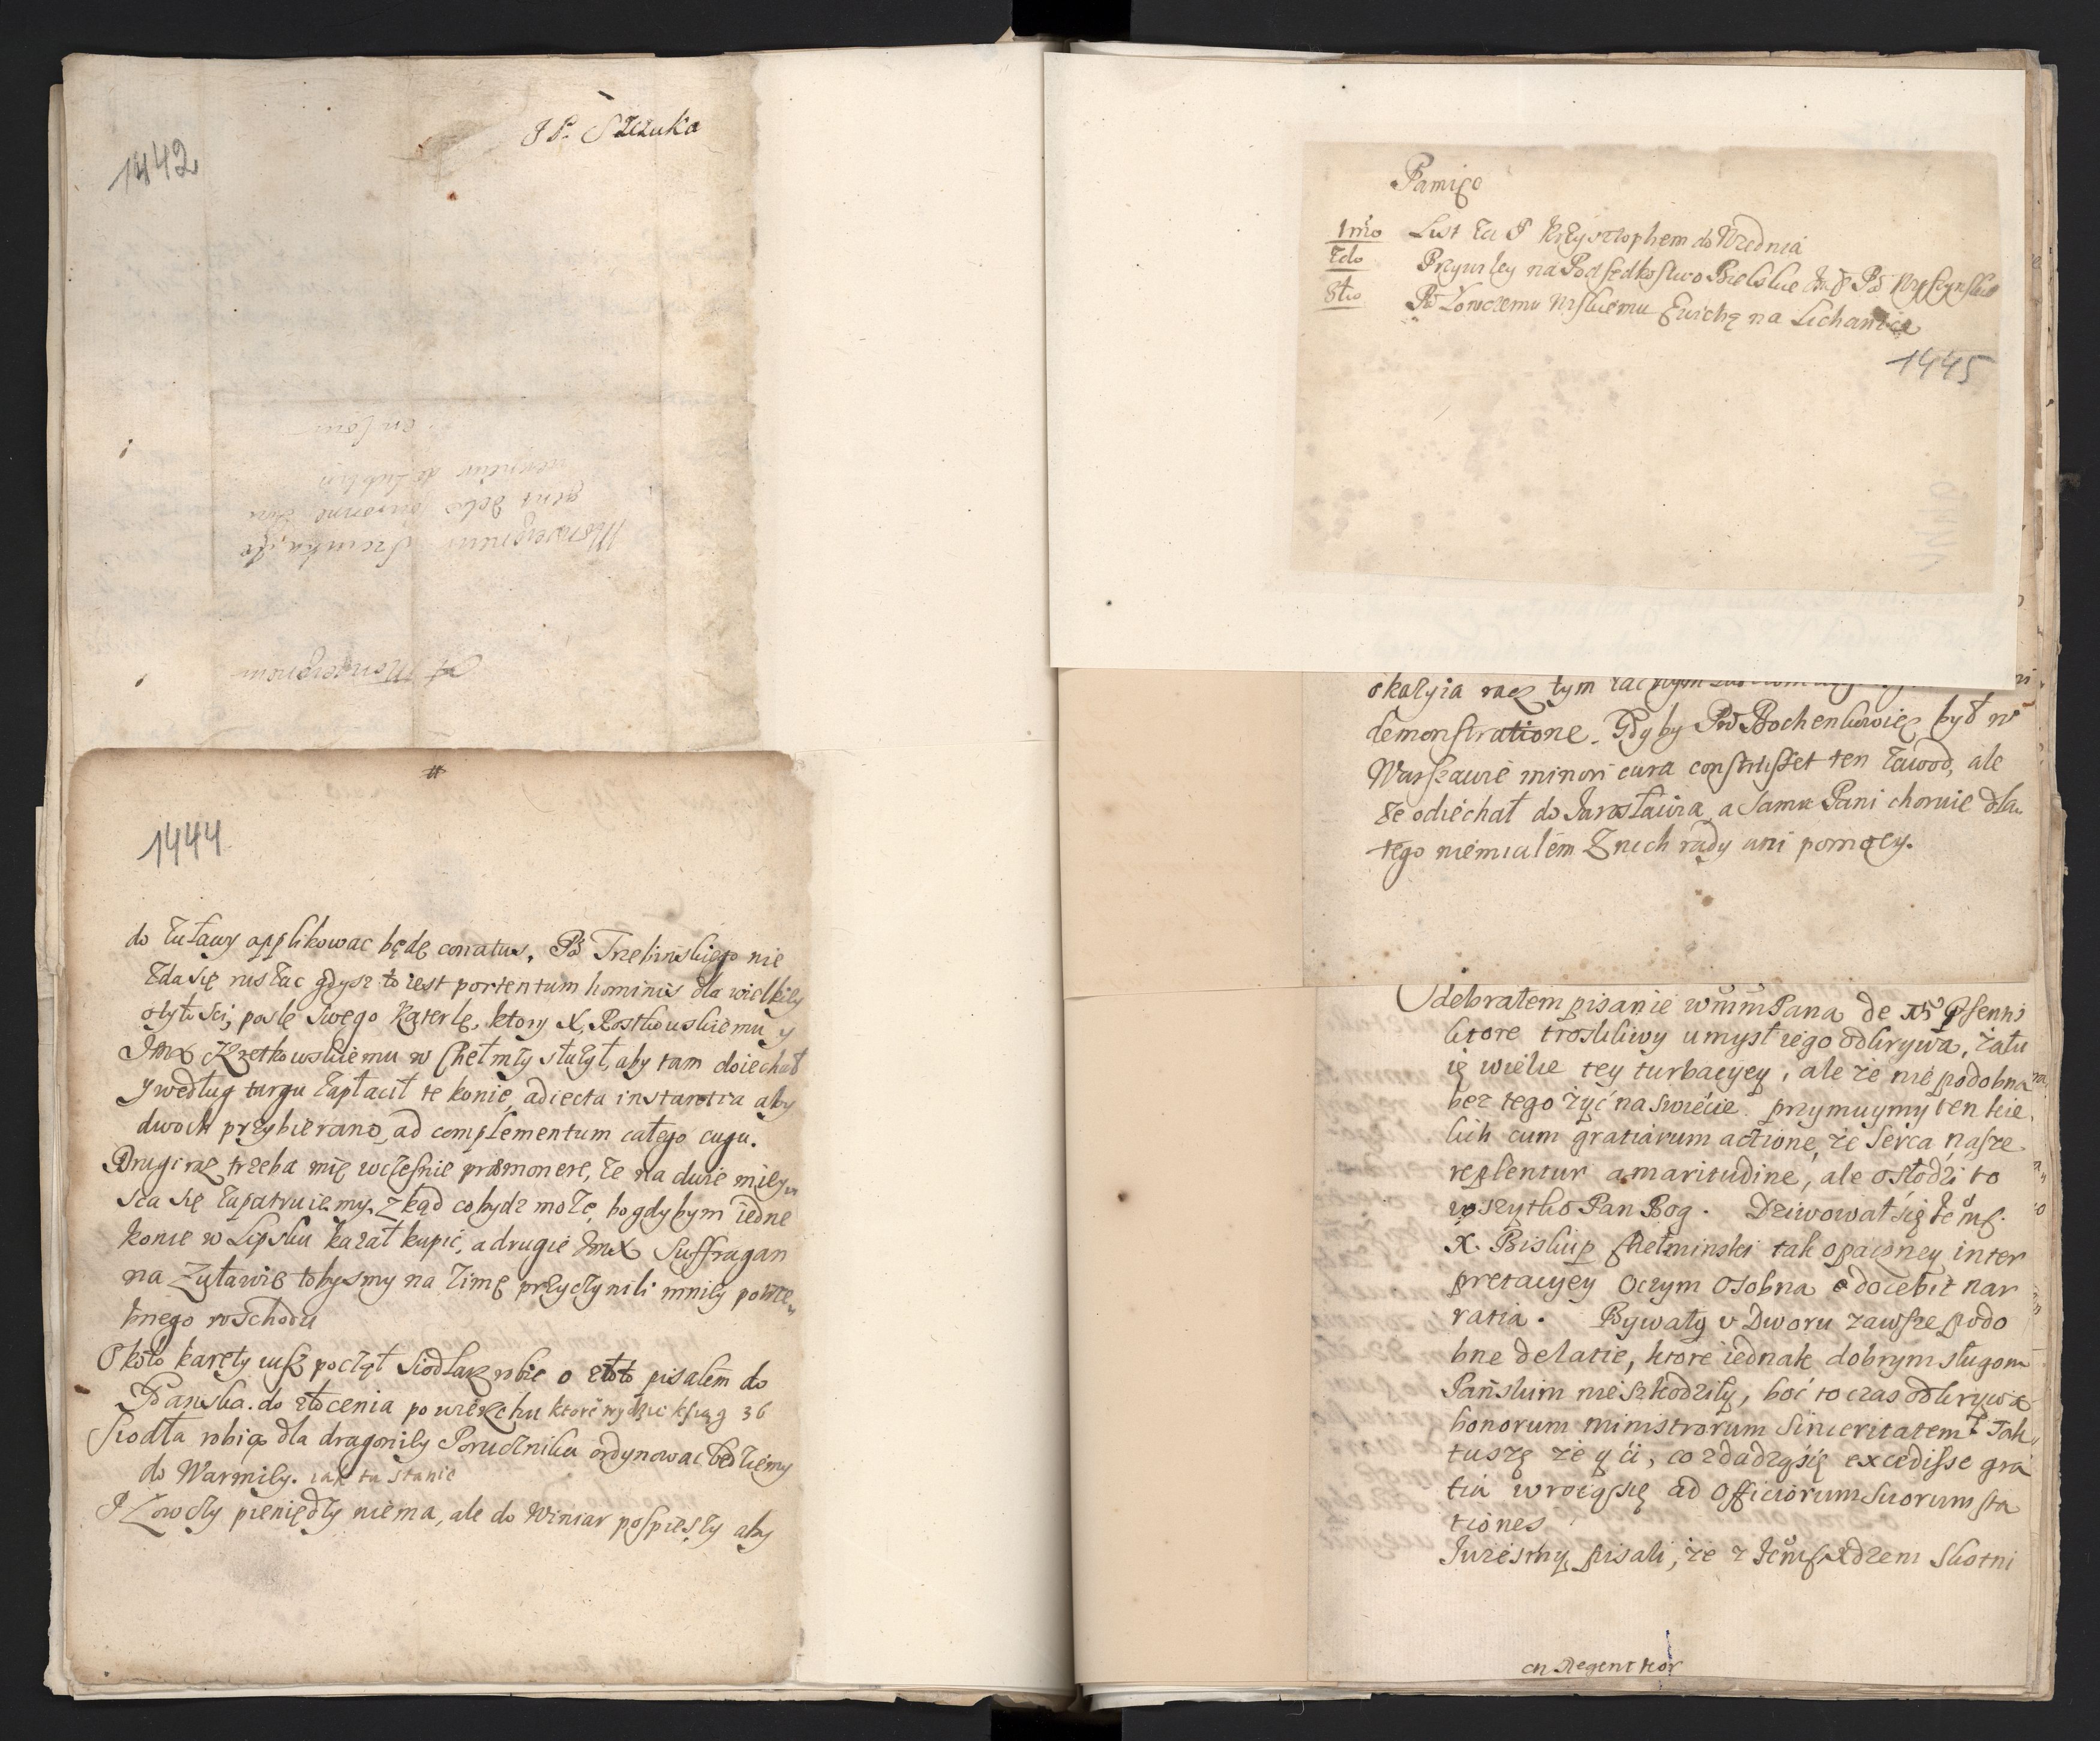 J P. Szczuka
1442
en Cour
A Monseigneur
#
1444
do Zuławy applikowac będę conatus, Pã Trzebinskiego nie
zda się ruszac gdysz to iest portentum hominis dla wielkiey
otyłosci, poslę swego Katerlę, ktory X. Rostkowskiemu y
JmX Kretkowskiemu w Chełmży służył, aby tam doiechał
y według targu zapłacił te konie, adiecta instantia aby
dwoch przybierano ad complementum całego cugu.
Drugi raz trzeba mię wczesnie præmonere, że na dwie miey
sca się zapatruiemy, zkąd co bydz może, bo gdybym iedne
konie w Lipsku kazał kupic, a drugie JmX Suffragan
na Zuławie tobysmy na zimę przyczynili mniey potrze
bnego roschodu
Około karety iusz począł siodlarz robic o złoto pisalem do
Gdanska do złocenia po wierzchu ktore wydzie ksiąg 36
Siodła robią dla dragoniey Porucznika ordynowac będziemy
do Warmiey. iak tu stanie
P Łowczy pieniędzy niema, ale do Winiar pospieszy aby
Pamięc
1mo List za P Krzysztophem do Wiednia
2do Przywiley na Podsedkostwo Bielskie
3tio Pã Łowczemu
na Lichanice
1445
okazyia racz tym
demonstratione. Gdyby Pã Bochenkowicz był w
Warszawie minori cura constitisset ten zawod, ale
że odiechał do Jarosławia, a sama Pani choruie dla
tego niemialem z nich rady ani pomocy.
Odebrałem pisanie wmmPana de
ktore troskliwy umysł iego odkrywa, żału
ię wielce tey turbacyey, ale że nie podobna
bez tego żyć na swiecie. przymuymy ten kie
lich cum gratiarum actione, że serca nasze
replentur amaritudine, ale osłodzi to
wszytko Pan Bog. Dziwował się
X. Biskup Chełminski tak opaczney inter
pretacyey o czym osobna edocebit nar
ratia. Bywały v Dworu zawsze podo
bne delatie, ktore iednak dobrym sługom
Pańskim nie szkodziły, boć to czas odkrywa
bonorum ministrorum sinceritatem. Tak
tuszę że y ci, co zdadzą się excedisse gra
tia wrocą się ad Officiorum suorum sta
tiones.
Jużesmy pisali, że z
Skotni
Regent kor